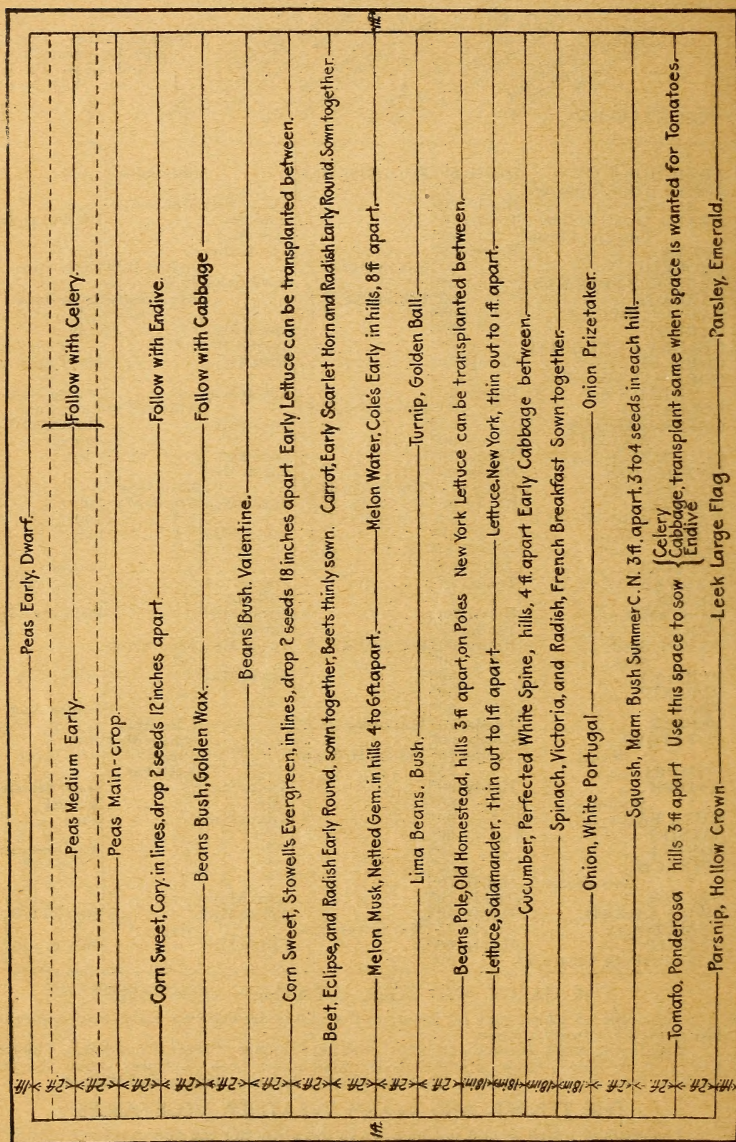 4ft.
Peas Early, Dwarf.
Peas Medium Early. } Follow with Celery.
Peas Main-crop.
Corn Sweet, Cory. in lines, drop 2 seeds 12 inches apart Follow with Endive.
Beans Bush, Golden Wax. Follow with Cabbage
Beans Bush. Valentine.
Corn Sweet, Stowell's Evergreen, in lines, drop 2 seeds 18 inches apart Early Lettuce can be transplanted between.
Beet, Eclipse, and Radish Early Round, sown together, Beets thinly sown. Carrot, Early Scarlet Horn and Radish Early Round. Sown together.
Melon Musk, Netted Gem. in hills 4 to 6 ft. apart. Melon Water, Cole's Early in hills, 8 ft apart.
Lima Beans. Bush. Turnip, Golden Ball.
Beans Pole, Old Homestead, hills 3 ft apart, on Poles New York Lettuce can be transplanted between.
Lettuce, Salamander. thin out to 1 ft apart Lettuce. New York, thin out to 1 ft. apart.
Cucumber, Perfected White Spine, hills, 4 ft. apart Early Cabbage between.
Spinach, Victoria, and Radish, French Breakfast Sown together.
Onion, White Portugal Onion Prizetaker.
Squash, Mam. Bush Summer C. N. 3 ft. apart. 3 to 4 seeds in each hill.
Tomato, Ponderosa hills 3 ft apart Use this space to sow { Celery
Cabbage, transplant same when space is wanted for Tomatoes.
Endive
Parsnip, Hollow Crown Leek Large Flag Parsley, Emerald.
1ft. 2ft. 2ft. 2ft. 2ft. 2ft. 2ft. 2ft. 2ft. 2ft. 2ft. 18in. 18in. 18in. 2ft. 2ft. 2ft. 1ft.
1ft.